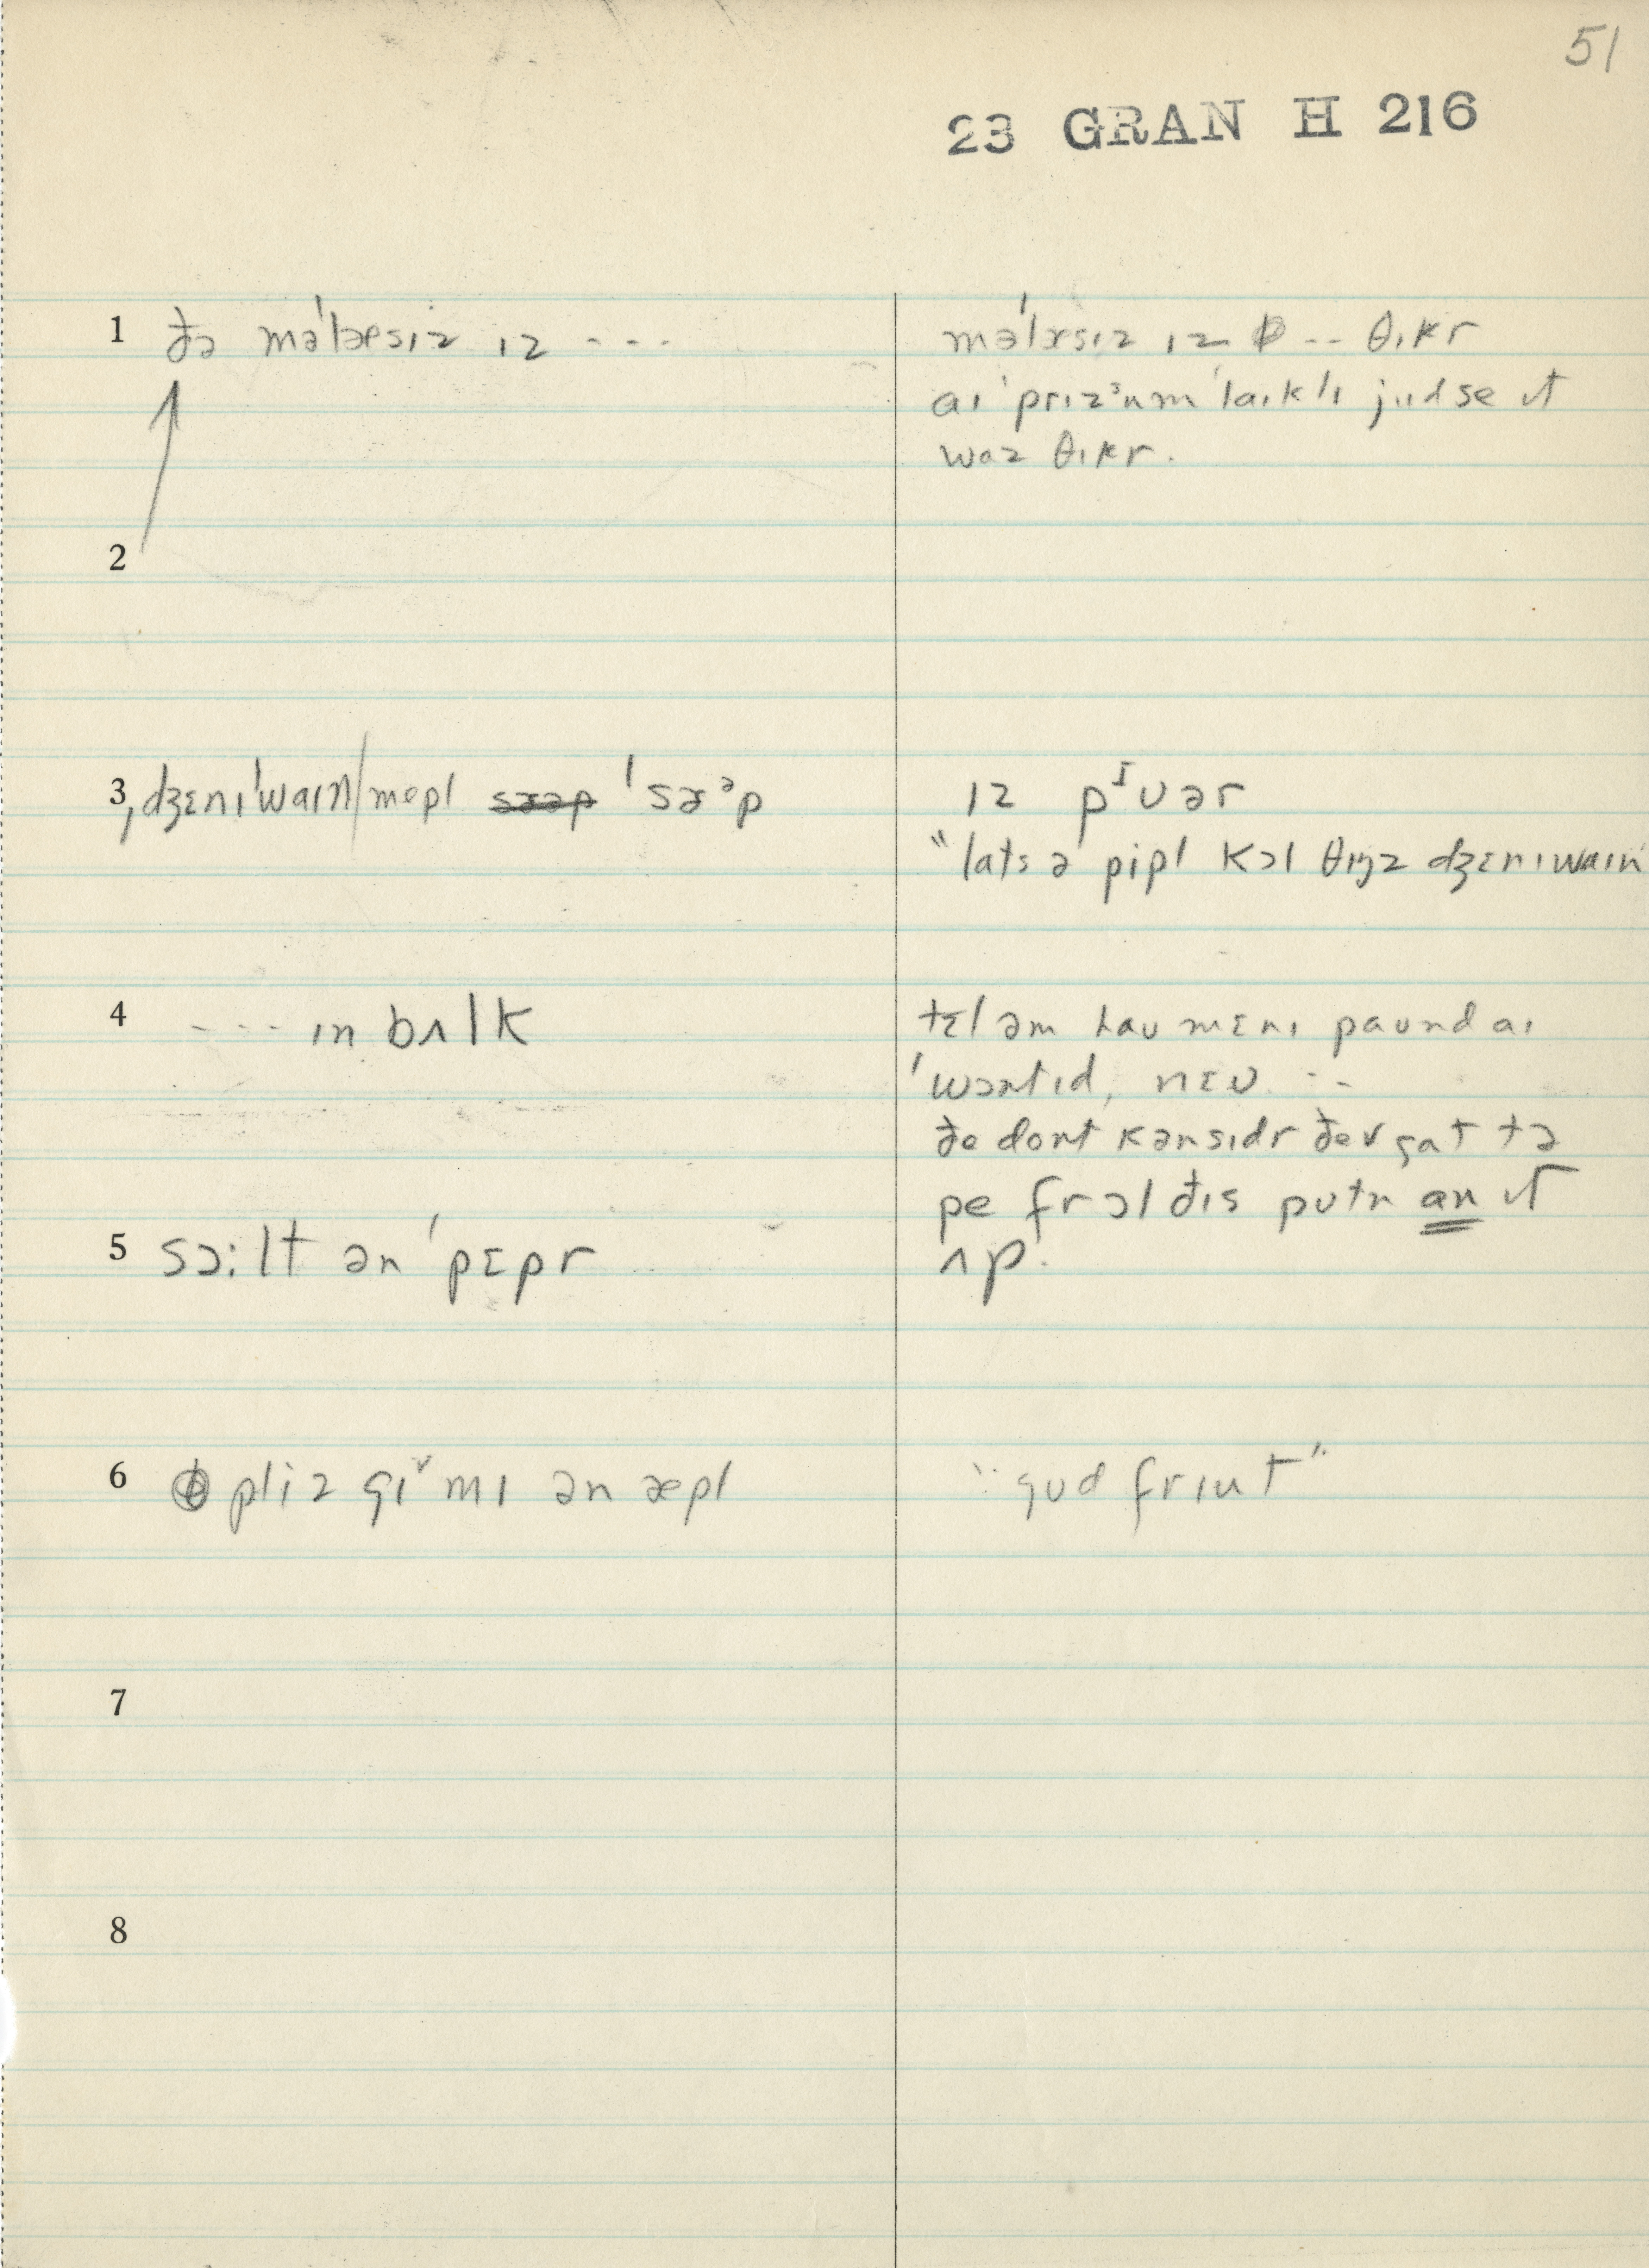 51
23 GRAN H 216
1 ðə mə'læsɪz ɪz - - -
mə'læsɪz ɪz -- θɪkr
aɪ 'prɪzᵊum 'laɪklɪ jud se ɪt
waz θɪkr.
2
3 ˌdʒɛnɪ'waɪn/mepl 'sæᵊp
ɪz pᶦʊər
"lats ə pipl kɔl θɪŋz dʒɛnɪwaɪn
4 - - - ɪn bʌlk
tɛl əm haʊ mɛnɪ paʊnd aɪ
'wɔntɪd, nɛʊ --
ðe dont kənsɪdr ðev gat tə
pe fr ɔl ðɪs putn an ɪt
ʌp.
5 sɔ:lt ən 'pɛpr
6 pliz gɪᵛ mɪ ən æpl
"gʊd frɪut"
7
8